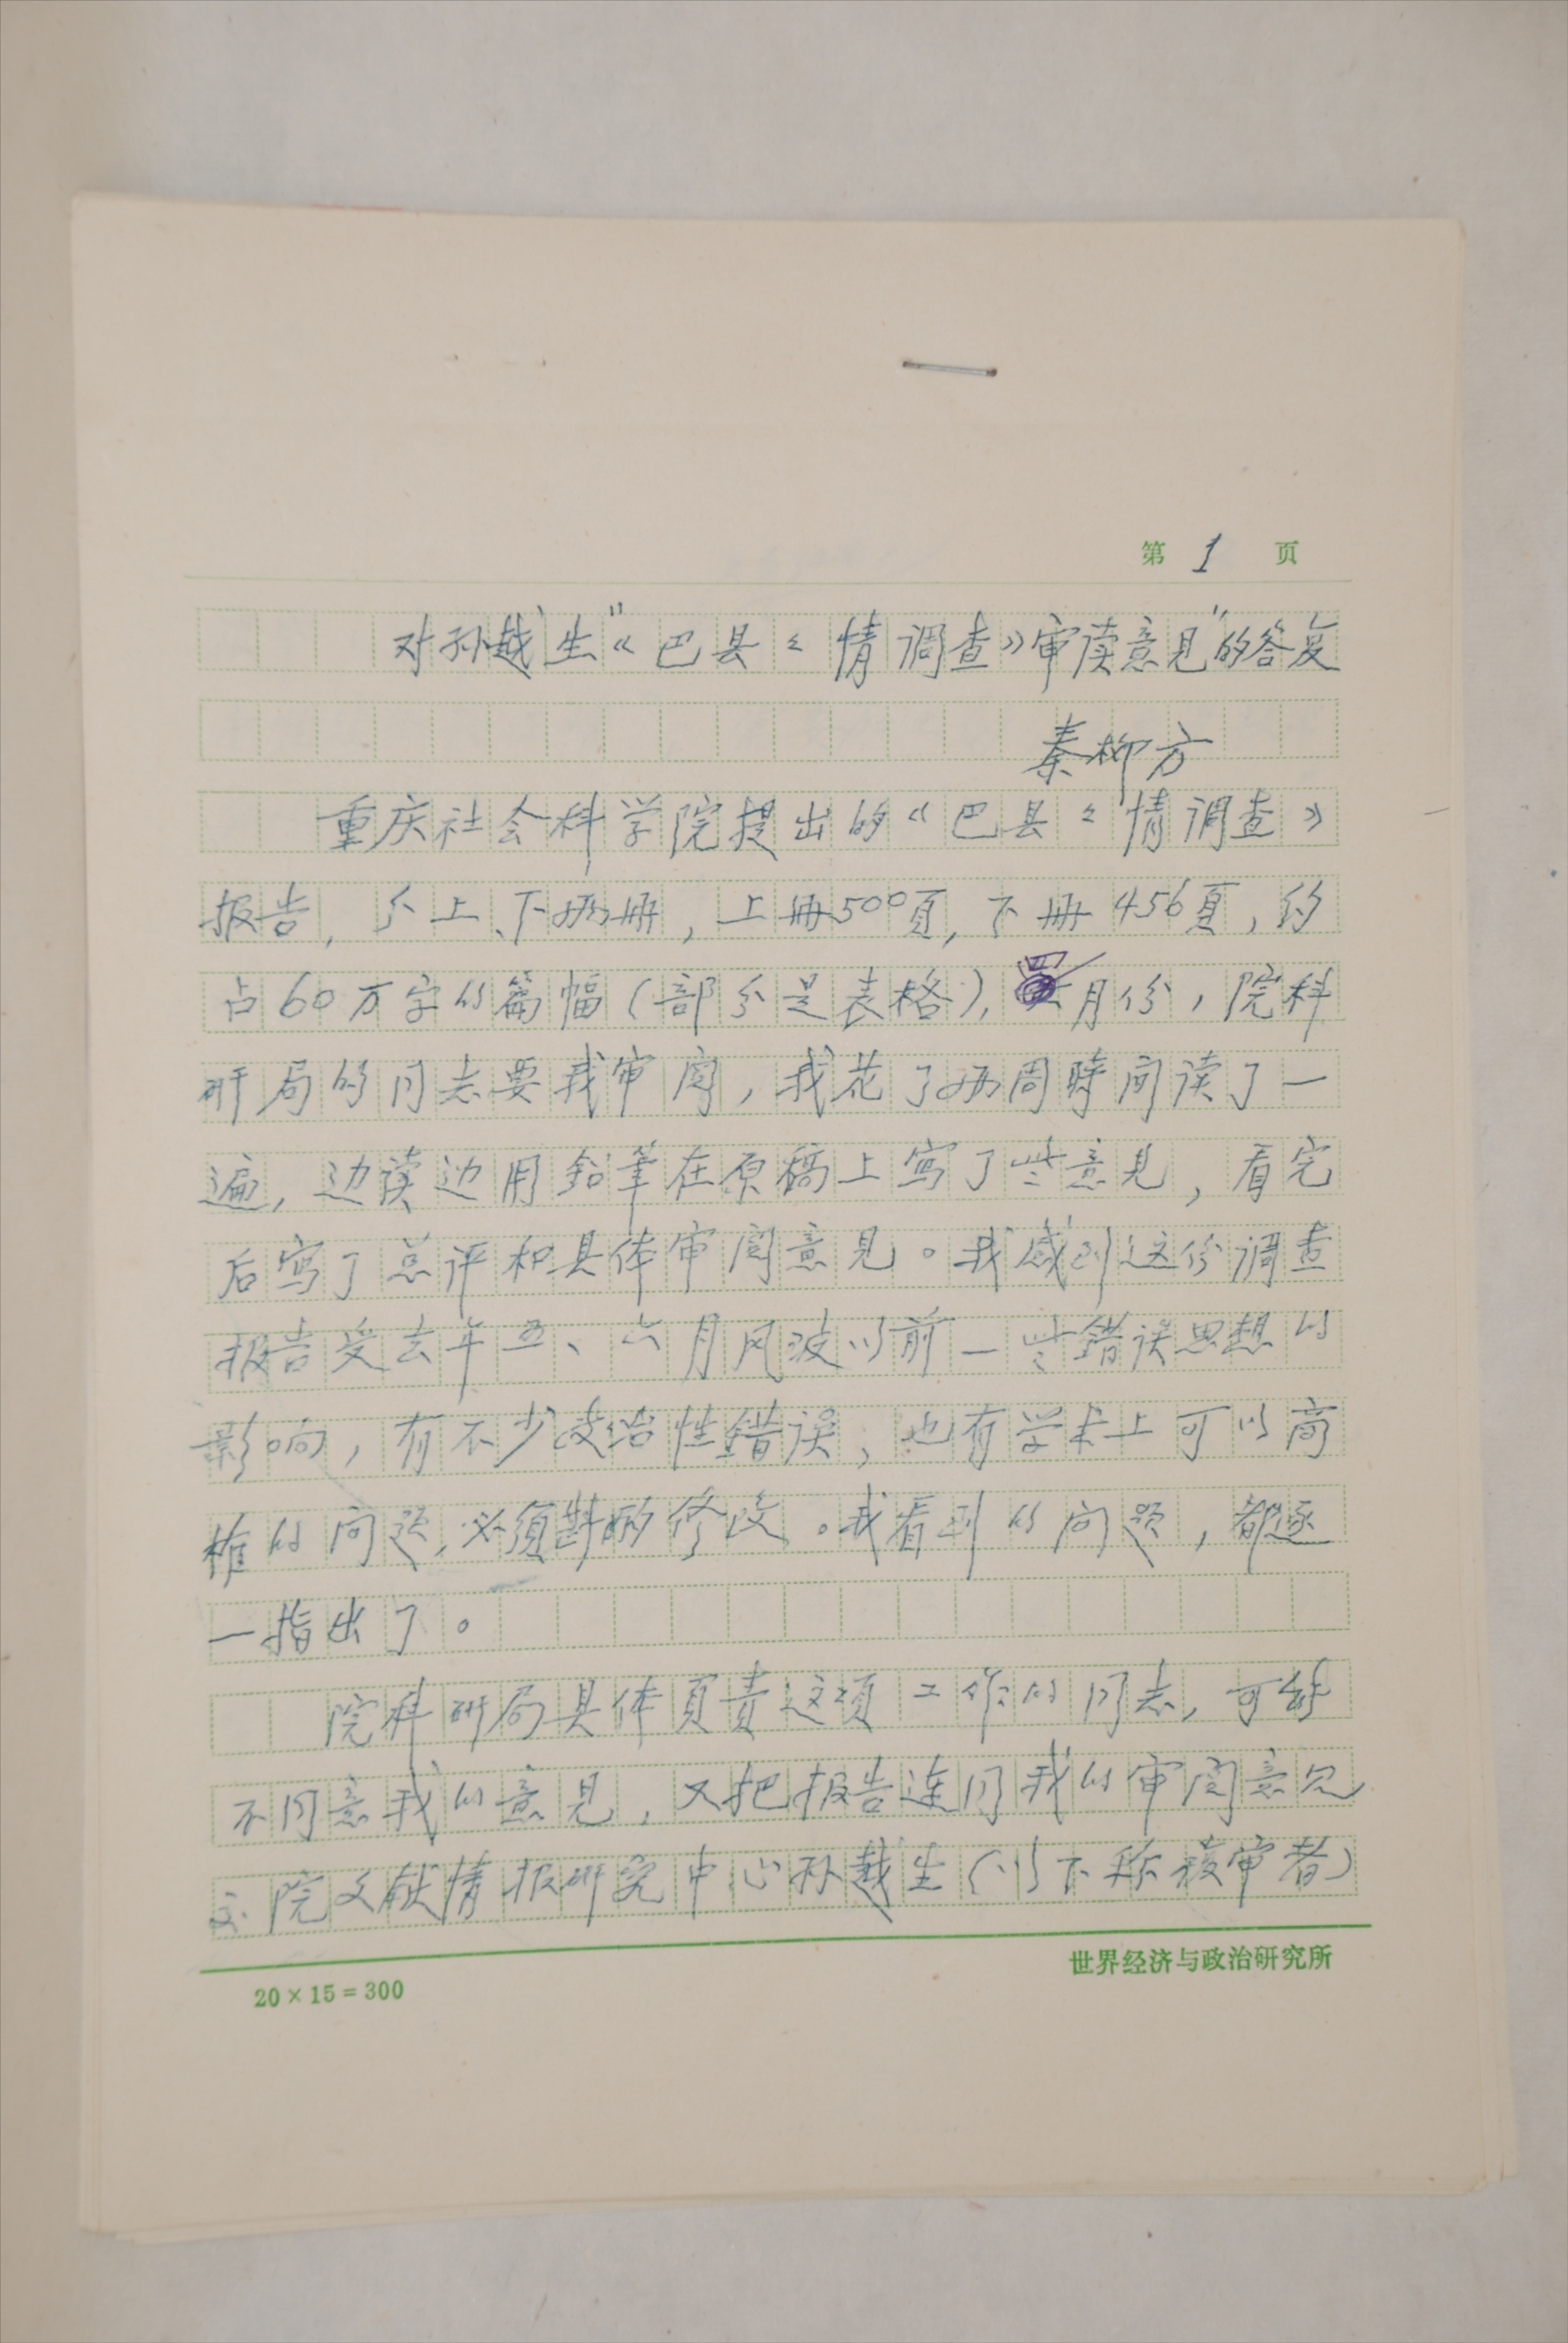 第 1 页
对孙越生“《巴县县情调查》审读意见”的答复
秦柳方
重庆社会科学院提出的《巴县县情调查》
报告,分上、下两册,上册500頁,下册456頁,约
占60万字的篇幅(部分是表格),四月份,院科
研局的同志要我审阅,我花了两周時间读了一
遍,边读边用鉛筆在原稿上写了些意见,看完
后写了总评和具体审阅意见。我感到这份调查
报告受去年五、六月风波以前一些错误思想的
影响,有不少政治性错误,也有学术上可以商
榷的问题,必须斟酌修改。我看到的问题,都逐
一指出了。
院科研局具体負責这项工作的同志,可能
不同意我的意见,又把报告连同我的审阅意见
交院文献情报研究中心孙越生(以下称核审者)
20×15=300
世界经济与政治研究所